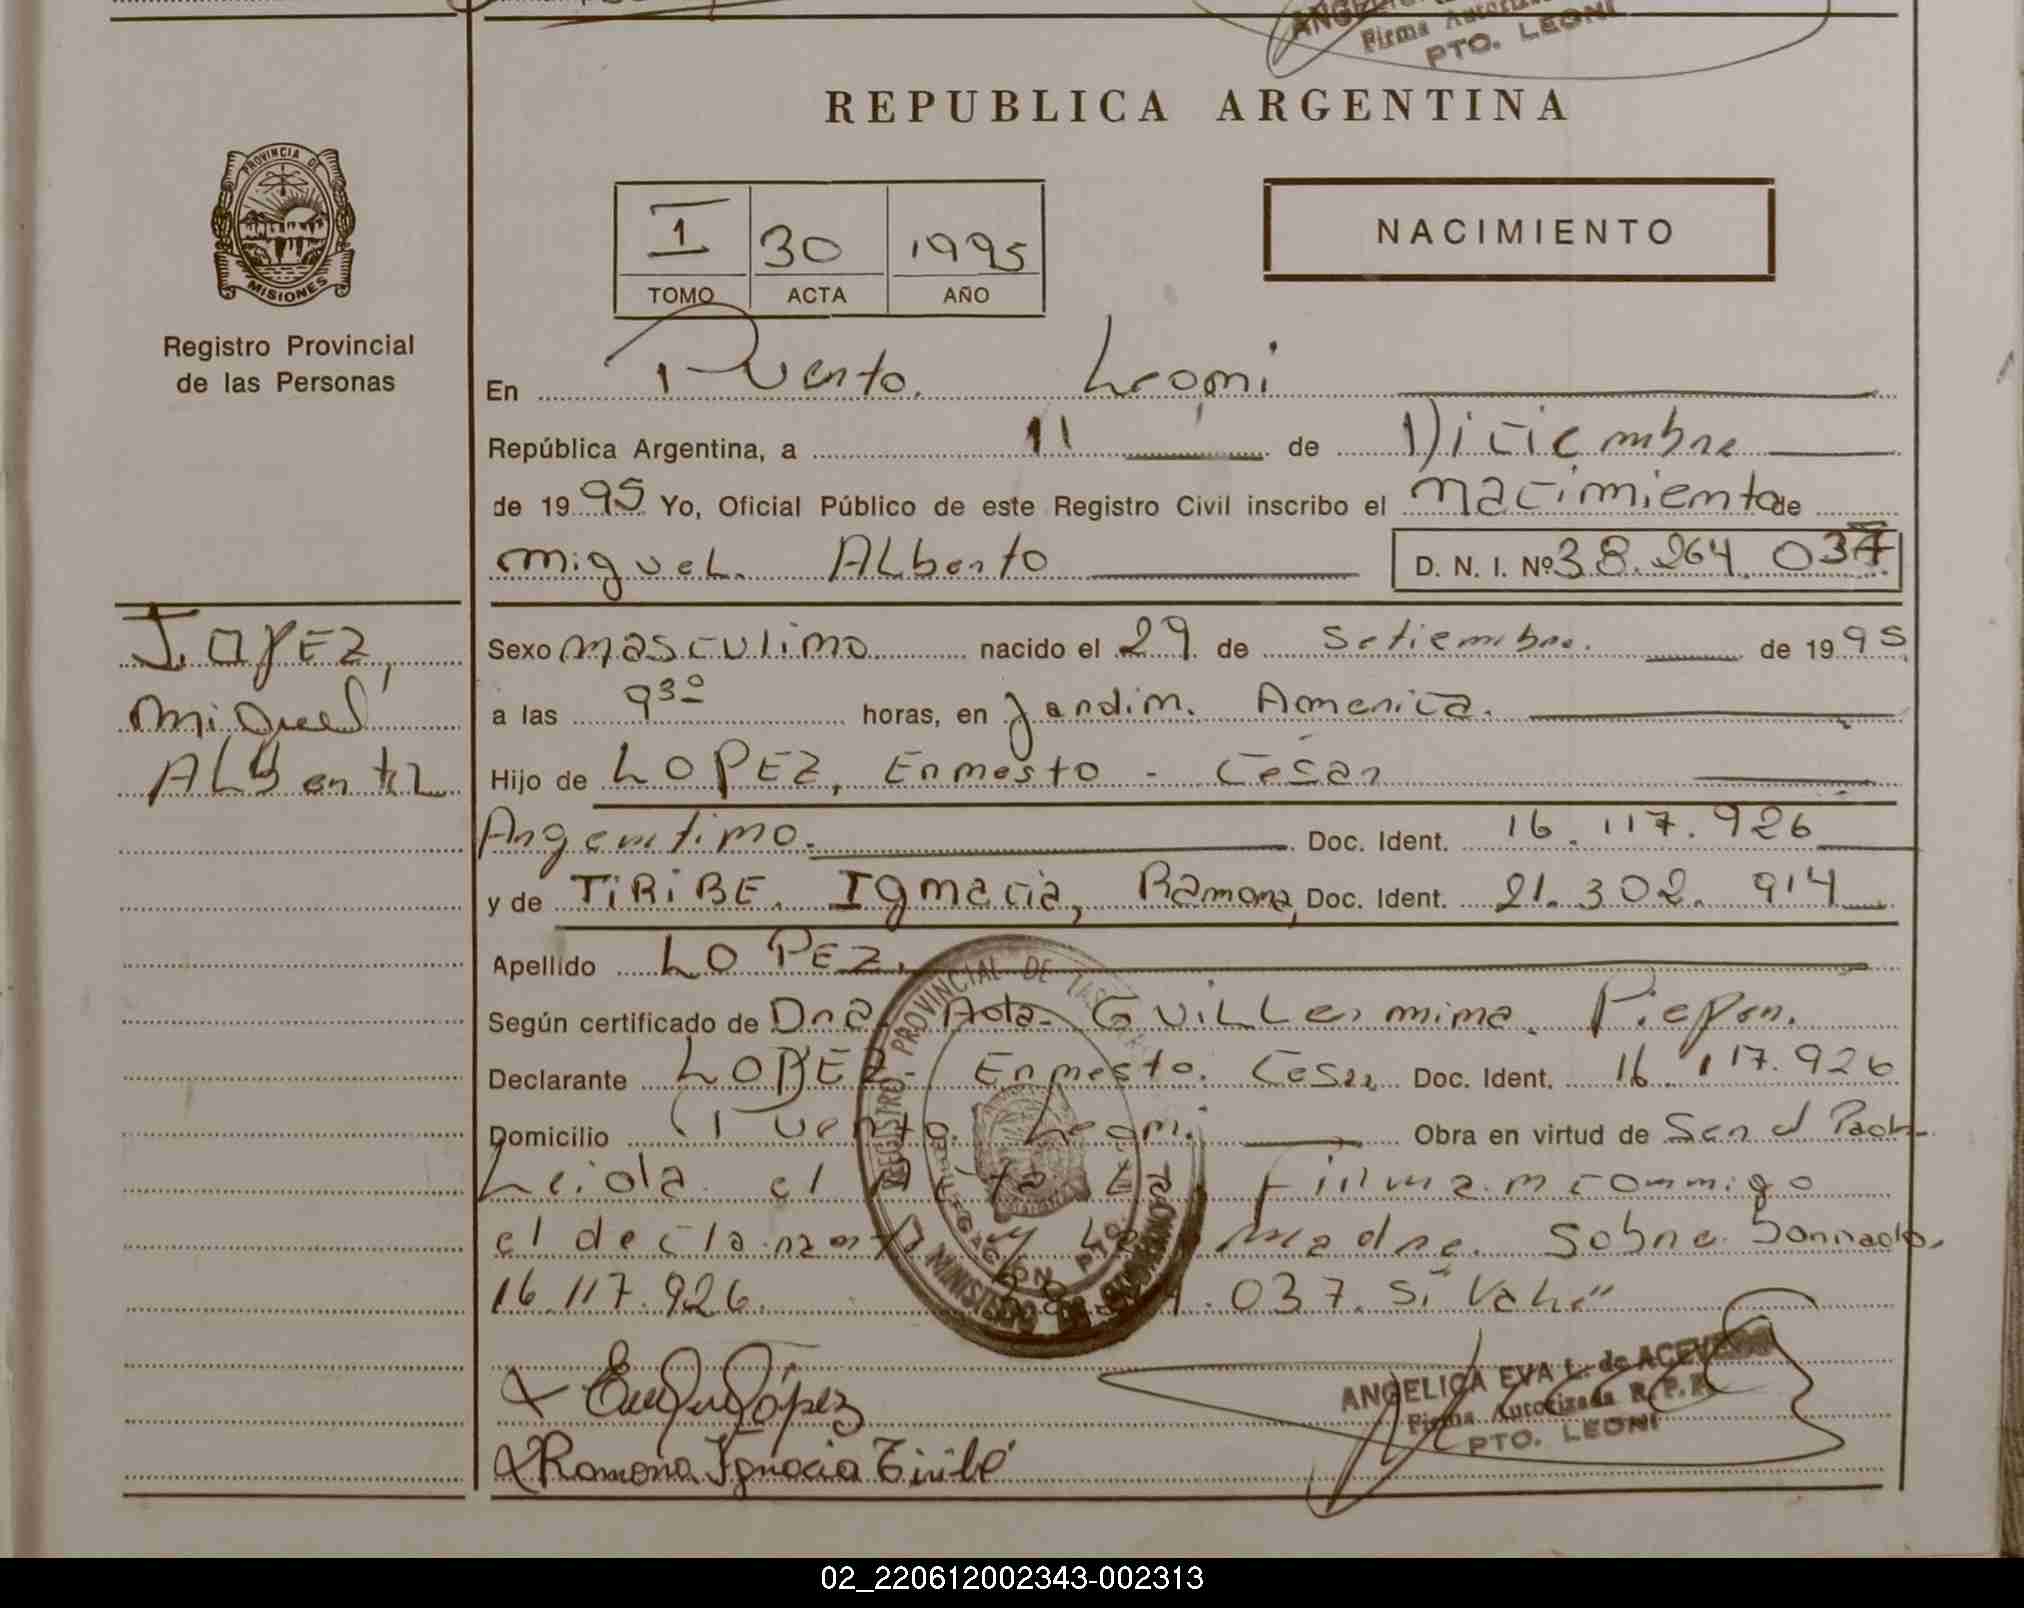 Firma
PTO. LEONI
REPUBLICA ARGENTINA
PROVINCIA DE
MISIONES
Registro Provincial
de las Personas
I 30 1995
TOMO ACTA AÑO
NACIMIENTO
En Puerto Leoni
República Argentina, a 11 de Diciembre
de 1995 Yo, Oficial Público de este Registro Civil inscribo el nacimiento de
miguel Alberto D. N. I. Nº 38.264.037
LOPEZ,
miguel
Alberto
Sexo masculino nacido el 29 de Setiembre de 1995
a las 9 30 horas, en Jardin America.
Hijo de LOPEZ, Ernesto - Cesar
Argentino. Doc. Ident. 16.117.926
y de TIRIBE. Ignacia, Ramona, Doc. Ident. 21.302.914
Apellido LOPEZ.
Según certificado de Dra. Guillermina
Declarante LOPEZ - Ernesto. Cesar Doc. Ident. 16.117.926
Domicilio Puerto Leoni. Obra en virtud de Ser el Padre
Leida el Acta La Firman conmigo
el declarante y La madre. Sobre borrado.
16.117.926. .037. Si Vale"
REGISTRO PROVINCIAL DE LAS
MINISTERIO DE GOBIERNO
López
Ramona Ignacia Tiribé
ANGELICA EVA L. de ACEVEDO
Firma Autorizada R. P. P.
PTO. LEONI
02_220612002343-002313